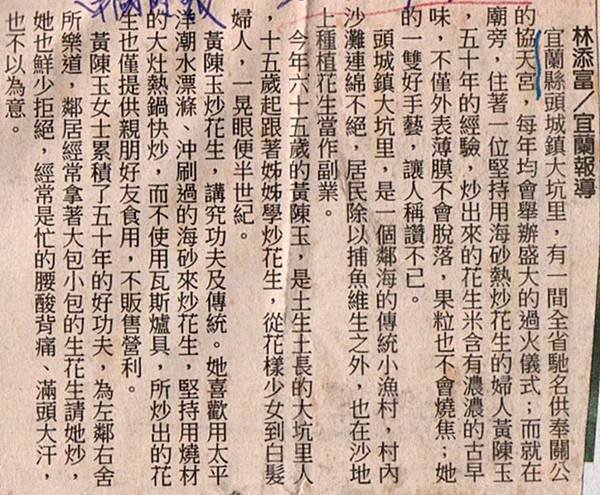 林添富／宜蘭報導
宜蘭縣頭城鎮大坑里，有一間全省馳名供奉關公
的協天宮，每年均會舉辦盛大的過火儀式；而就在
廟旁，住著一位堅持用海砂熱炒花生的婦人黃陳玉
，五十年的經驗，炒出來的花生米含有濃濃的古早
味，不僅外表薄膜不會脫落，果粒也不會燒焦；她
的一雙好手藝，讓人稱讚不已。
頭城鎮大坑里，是一個鄰海的傳統小漁村，村內
沙灘連綿不絕，居民除以捕魚維生之外，也在沙地
上種植花生當作副業。
今年六十五歲的黃陳玉，是土生土長的大坑里人
，十五歲起跟著姊姊學炒花生，從花樣少女到白髮
婦人，一晃眼便半世紀。
黃陳玉炒花生，講究功夫及傳統。她喜歡用太平
洋潮水漂滌、沖刷過的海砂來炒花生，堅持用燒材
的大灶熱鍋快炒，而不使用瓦斯爐具，所炒出的花
生也僅提供親朋好友食用，不販售營利。
黃陳玉女士累積了五十年的好功夫，為左鄰右舍
所樂道，鄰居經常拿著大包小包的生花生請她炒，
她也鮮少拒絕，經常是忙的腰酸背痛、滿頭大汗，
也不以為意。